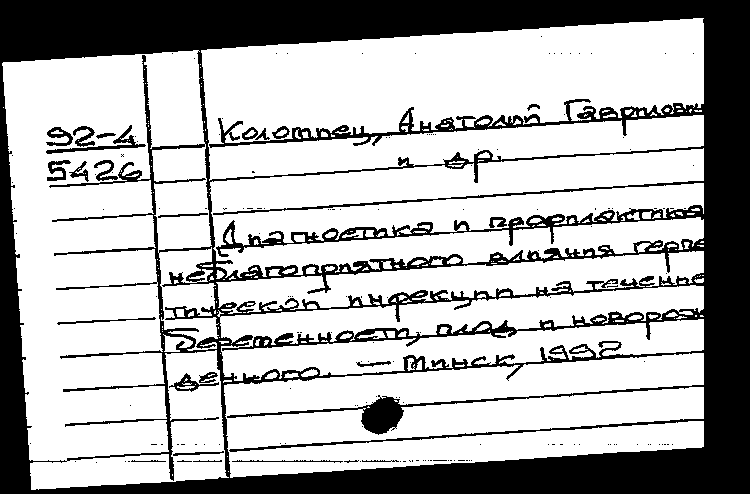 92-4 Коломиец, Анатолий Гаврилович
5426 и др.
Диагностика и профилактика
неблагоприятного влияния герпе
тической инфекции на течение
беременности, плод и новорож
денного. — Минск, 1992